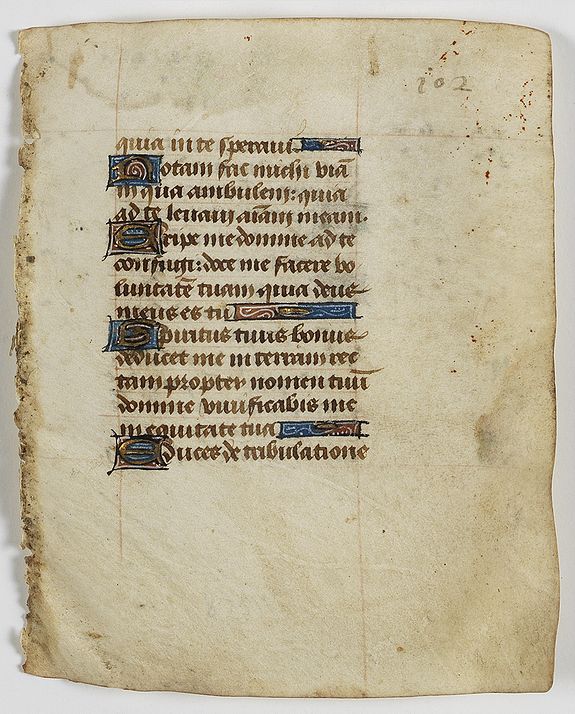 102
quia in te speraui
Notam fac michi viā
in qua ambulem: quia
ad te leuaui aīam meam.
Eripe me domine ad te
confugi: doce me facere vo
luntatē tuam quia deus
meus es tu
Spiritus tuus bonus
deducet me in terram rec
tam propter nomen tuū
domine viuificabis me
in equitate tua
Educes de tribulatione